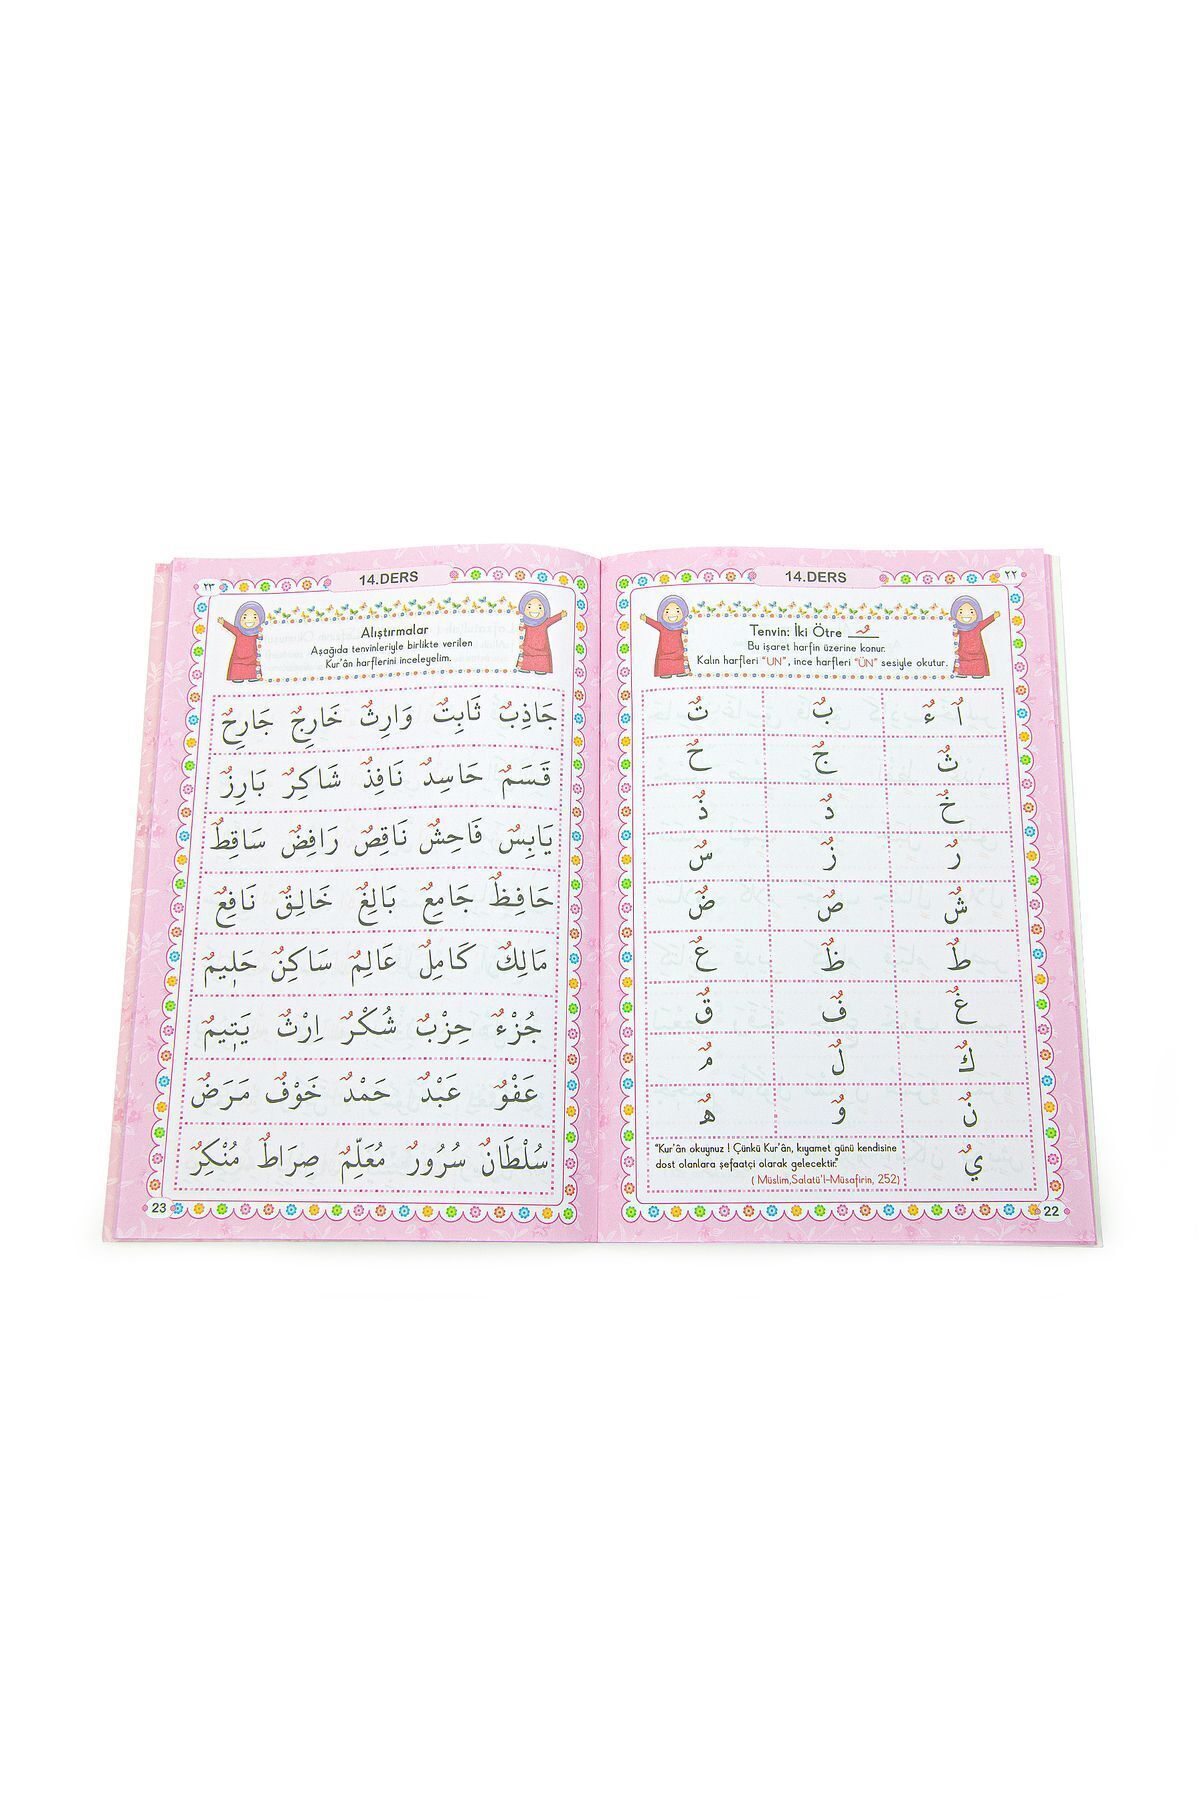 ٢٢
14.DERS
Tenvin: İki Ötre ـٌـ
Bu işaret harfin üzerine konur.
Kalın harfleri "UN", ince harfleri "ÜN" sesiyle okutur.
اٌ ءٌ بٌ تٌ
ثٌ جٌ حٌ
خٌ دٌ ذٌ
رٌ زٌ سٌ
شٌ صٌ ضٌ
طٌ ظٌ عٌ
غٌ فٌ قٌ
كٌ لٌ مٌ
نٌ وٌ هٌ
يٌ
"Kur'ân okuyunuz ! Çünkü Kur'ân, kıyamet günü kendisine
dost olanlara şefaatçi olarak gelecektir."
( Müslim,Salatü'l-Müsafirin, 252)
22
٢٣
14.DERS
Alıştırmalar
Aşağıda tenvinleriyle birlikte verilen
Kur'ân harflerini inceleyelim.
جَاذِبٌ ثَابِتٌ وَارِثٌ خَارِجٌ جَارِحٌ
قَسَمٌ حَاسِدٌ نَافِذٌ شَاكِرٌ بَارِزٌ
يَابِسٌ فَاحِشٌ نَاقِصٌ رَافِضٌ سَاقِطٌ
حَافِظٌ جَامِعٌ بَالِغٌ خَالِقٌ نَافِعٌ
مَالِكٌ كَامِلٌ عَالِمٌ سَاكِنٌ حَلِيمٌ
جُزْءٌ حِزْبٌ شُكْرٌ اِرْثٌ يَتِيمٌ
عَفْوٌ عَبْدٌ حَمْدٌ خَوْفٌ مَرَضٌ
سُلْطَانٌ سُرُورٌ مُعَلِّمٌ صِرَاطٌ مُنْكِرٌ
23